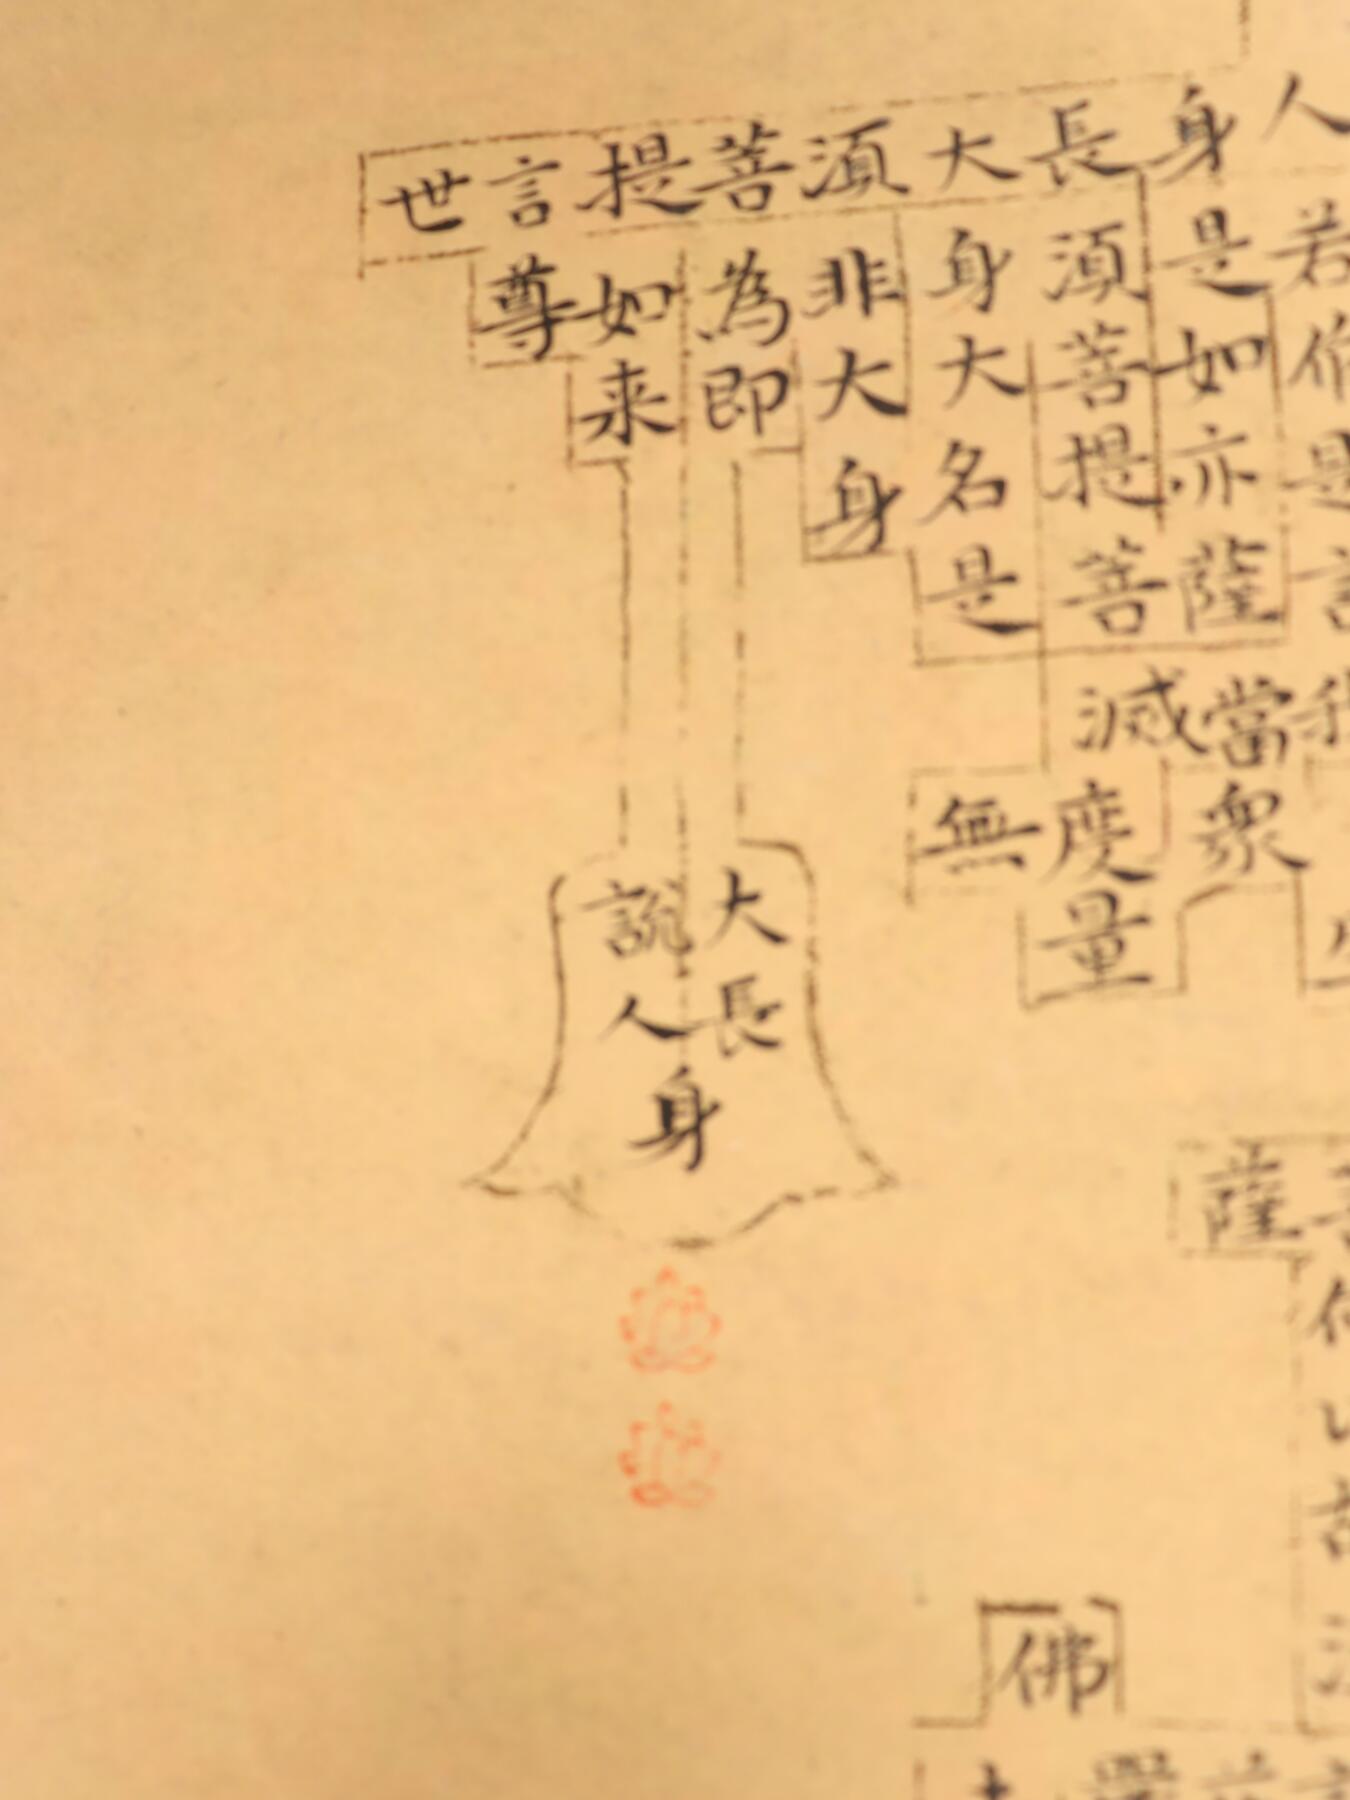 人若作是言我
身是如亦薩當衆
長須菩提菩滅度量
大身大名是無
須非大身
菩為即大長
身
提如来說人
言尊
世
薩
佛